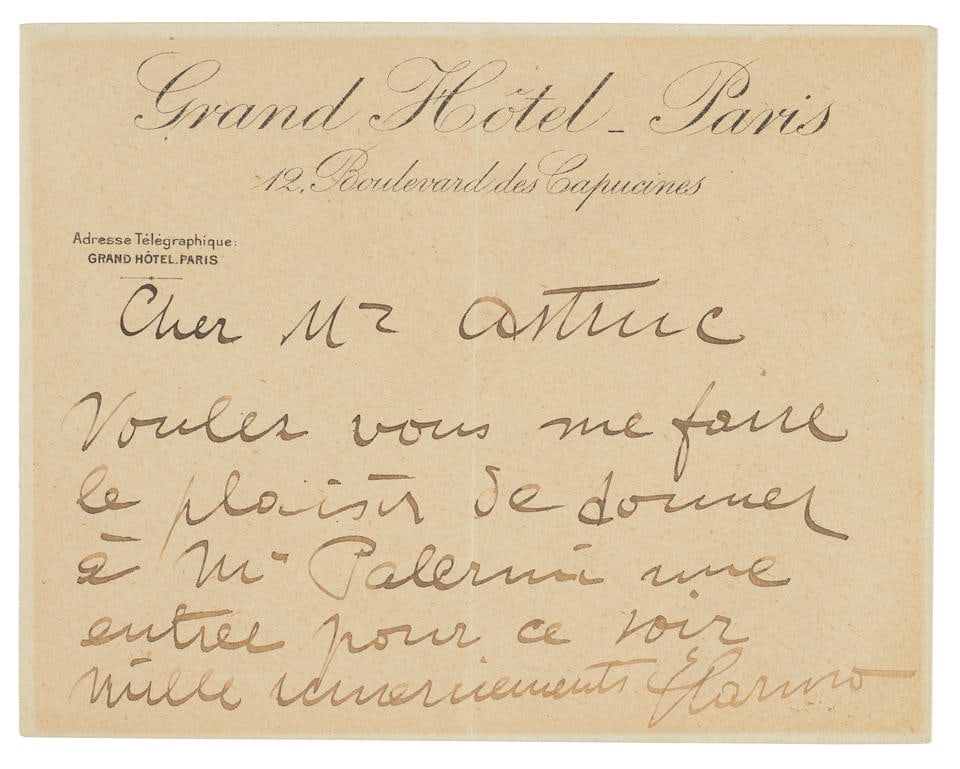 Grand Hôtel - Paris
12, Boulevard des Capucines
Adresse Télégraphique:
GRAND HÔTEL. PARIS
Cher Mr Astruc
Voulez vous me faire
le plaisir de donner
à Mr Palermi une
entrée pour ce soir
Mille remerciements ECaruso